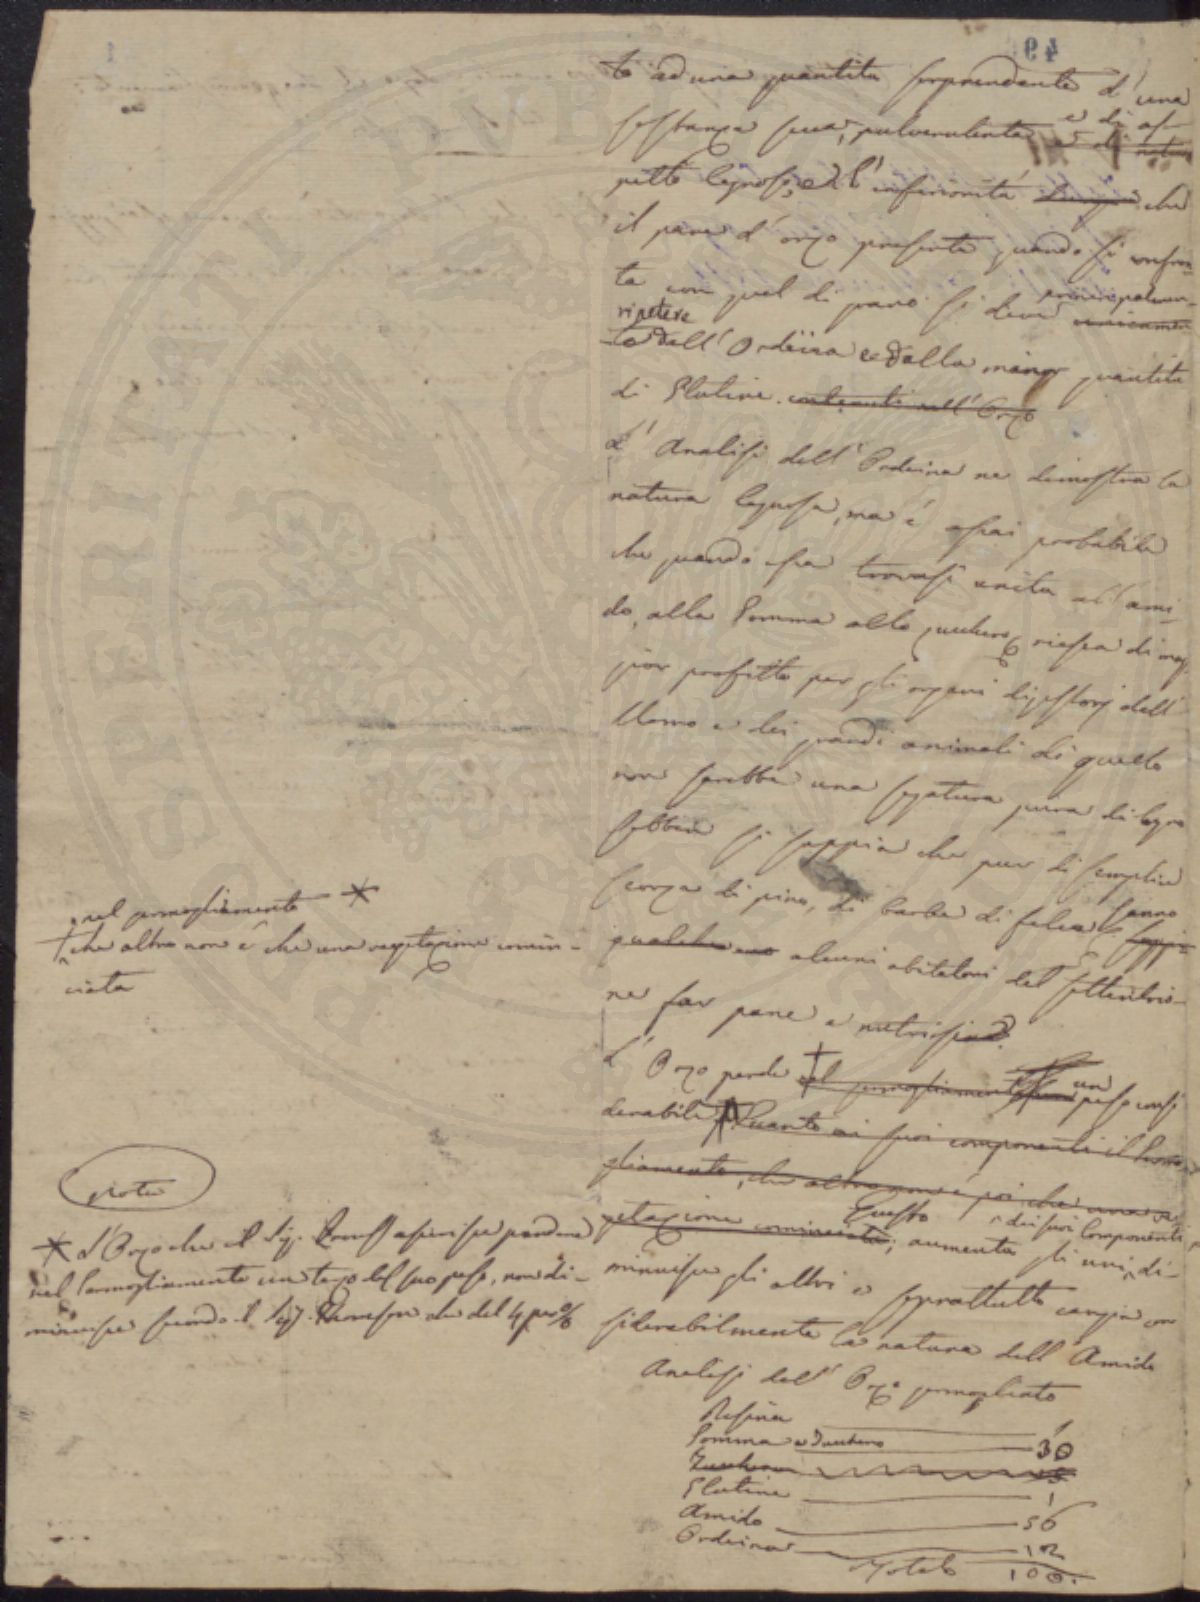 49
to ad una quantita sorprendente d'una
sostanza secca, pulverulenta e di as-
petto legnoso, e l'inferiorità che
il pane d'orzo presenta quando si confron
ta con quel di grano si deve principalmen-
unicamen
ripetere
te dall'Ordeina e dalla minor quantita
di Glutine contenuti nell'Orzo
L'Analisi dell'Ordeina ne dimostra la
natura legnosa, ma è assai probabile
che quando essa trovasi unita all'ami-
do, alla Gomma allo zucchero riesca di mag
gior profitto per gli organi digestorj dell'
Uomo e dei grandi animali di quello
non sarebbe una segatura pura di legno
sebbene si sappia che pur di semplice
scorza di pino, di barba di felce sanno
qualche alcuni abitatori del settentrio-
ne far pane e nutrirsi
L'Orzo perde nel germogliamento un peso consi
derabile Quanto ai suoi componenti il Germo
gliamento, che altro non è poi che una ve-
getazione cominciata, Questo aumenta gli uni dei suoi Componenti, di-
minuisce gli altri e soprattutto cangia con
siderabilmente la natura dell'Amido
Analisi dell'Orzo germogliato
Resina 1
Gomma e Zucchero 30
Zucchero 15
Glutine 1
Amido 56
Ordeina 12
Totale 100.
nel germogliamento *
che altro non è che una vegetazione comin-
ciata
Nota
* L'Orzo che il Sig. Proust asserisce perdere
nel Germogliamento un terzo del suo peso, non di-
minuisce secondo il Sig. Thomson che del 4 per %